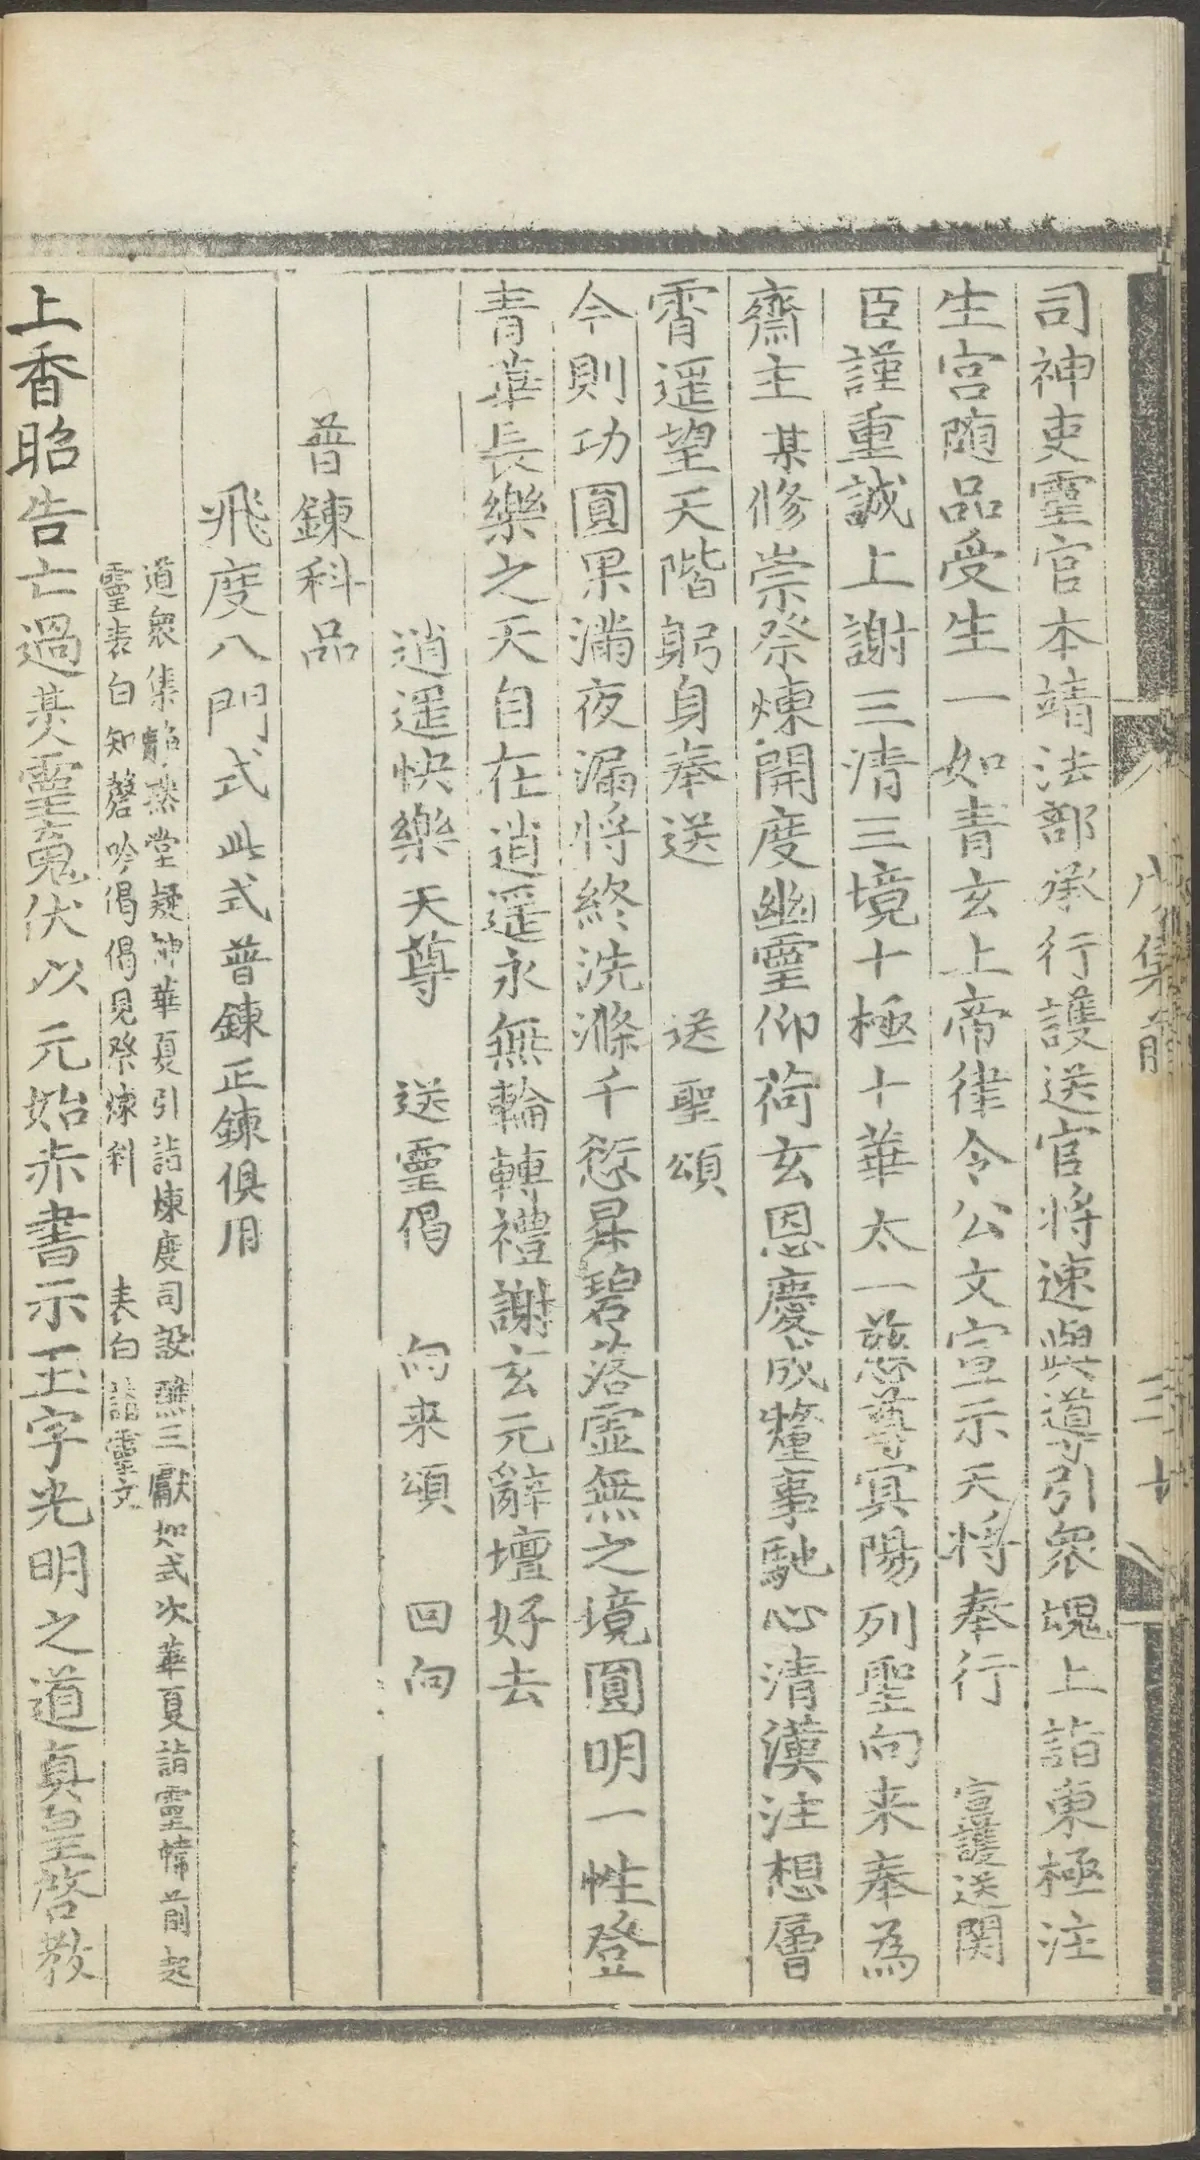 司神吏靈官本靖法部承行護送官將速與道引衆魂上詣東極注
生宮随品受生一如青玄上帝律令公文宣示天將奉行 宣護送関
臣謹重誠上謝三清三境十極十華太一慈尊冥陽列聖向来奉為
齋主某修崇祭煉開度幽靈仰荷玄恩慶成醮事馳心清漢注想層
霄遥望天階躬身奉送 送聖頌
今則功圓果滿夜漏将終洗滌千愆昇碧落虚無之境圓明一性登
青華長樂之天自在逍遥永無輪轉禮謝玄元辭壇好去
逍遥快樂天尊 送靈偈 向来頌 回向
普鍊科品
飛度八門式 此式普鍊正鍊俱用
道衆集 堂凝神華夏引詣煉度司設醮三獻如式次華夏詣靈幃前起
靈表白知磬吟偈偈見祭煉科 表白 詣靈文
上香昭告亡過某靈魂伏以元始赤書示玉字光明之道真皇啓教
集前 三十